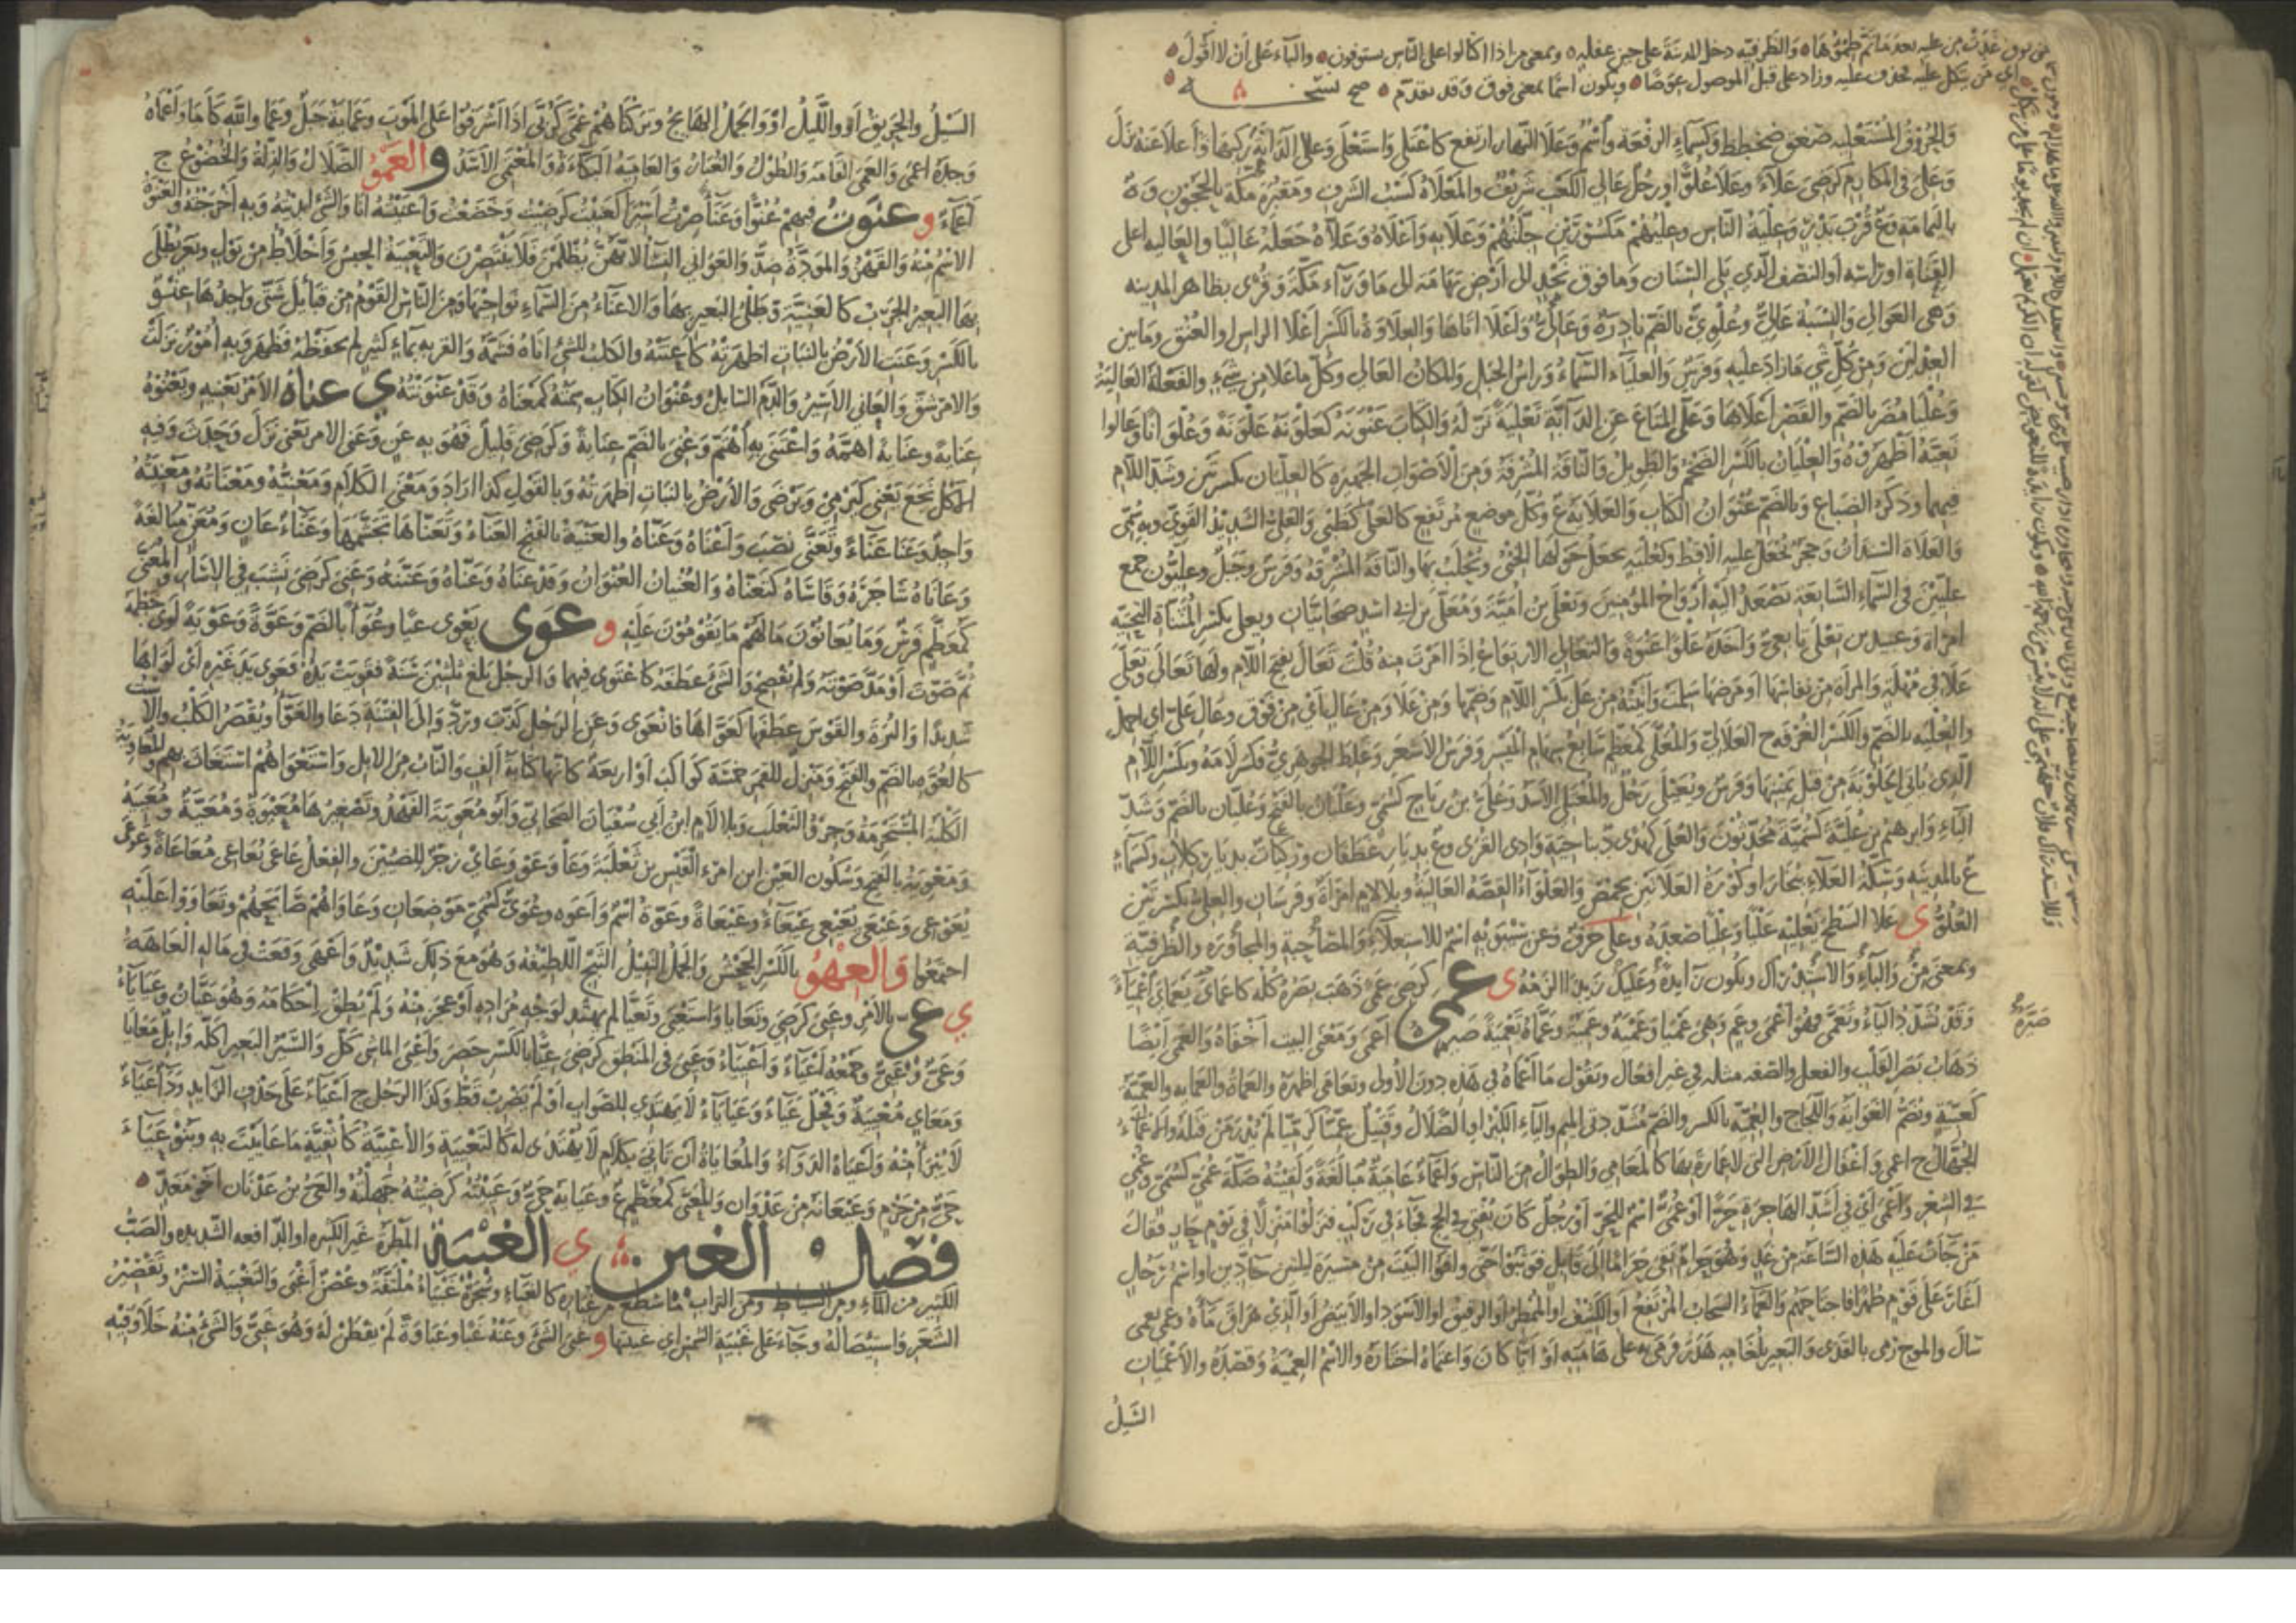 والظرفيه دخل المدينة على حين غفله ه وبمعنى من اذا اكتالوا على الناس يستوفون ه والباء على ان لا اقول ه
اي من يتكل عليه فحذف عليه وزاد على قبل الموصول عوضا ه ويكون اسما بمعنى فوق وقد تقدم ه صح نسخه
والحروف المستعليه صغق ضخطظ وكسماء الرفعة واسم وعلا النهار ارتفع كاعتلى واستعلى وعلا الدابة ركبها واعلا عنه نزل
وعلى في المكارم كرضى علاء وعلا علوا ورجل عالي الكعب شريف والمعلاة كسب الشرف ومقبرة مكة بالحجون وة
باليمامة وع قرب بدر وعلية الناس وعليهم مكسورتين جلتهم وعلا به واعلاه وعلاه جعله عاليا والعاليه اعلى
القناة او راسه او النصف الذي يلى السنان وما فوق نجد الى ارض تهامة الى ما وراء مكة وقرى بظاهر المدينه
وهى العوالى والنسبة عالى وعلوى بالضم نادرة وعالى واعلا اتاها والعلاوة بالكسر اعلا الراس او العنق وما بين
العدلين ومن كل شي ما زاد عليه وفرس والعلياء السماء وراس الجبل والمكان العالى وكل ما علا من شيء والفعلة العالية
وعليا مضر بالضم والقصر اعلاها وعلى المتاع عن الدابة تعلية نزله والكتاب عنونه كعلونه علونة وعلوانا وعالوا
نعيه اظهروه والعليان بالكسر الضخم والطويل والناقة المشرفة ومن الاصوات الجهيره كالعليان بكسرتين وشد اللام
فيهما وذكر الضباع وبالضم عنوان الكتاب والعلاية ع وكل موضع مرتفع كالعلى كظبي والعلى الشديد القوى وبه سمى
والعلاة السندان وحجر يجعل عليه الاقط وكعلبه يجعل حولها الخثى ويحلب بها والناقة المشرفه وفرس وجبل وعليون جمع
عليين في السماء السابعة تصعد اليه ارواح المؤمنين وتعلى بن امية ومعلى بن اسد صحابيان ويعلى بكسر المثناة التحتية
امراة وعبيد بن تعلى تابعى واخذه علوا عنوة والتعالى الارتفاع اذا امرت منه قلت تعال بفتح اللام ولها تعالى وتعلى
علا في مهلة والمراة من نفاسها او مرضها سلمت واتيته من عل بكسر اللام وضمها ومن علا ومن عال اي من فوق وعال على اى احمل
والعليه بالضم والكسر الغرفه ج العلالى والمعلى كمعظم سابع سهام الميسر وفرس الاشعر وغلط الجوهرى فكسر لامه وبكسر اللام
الذى ياتى الحلوبة من قبل يمينها وفرس ويعيلى رجل والمعتلى الاسد وعلى بن رباح كسمى وعليان بالفتح وعليان بالضم وشد
الياء وابرهيم بن علية كسمية محدثون والعلى كهدى د بناحية وادى القرى وع بديار غطفان وركيات بديار كلاب وكسماء
ع بالمدينه وسكة العلاء ببخارا وكورة العلاتين بحمص والعلواء القصة العالية وبلا لام امراة وفرسان والعلى بكسرتين
العلو ى علا السطح يعليه عليا وعليا صعده وعلى حرف وعن سيبويه اسم للاستعلاء والمصاحبة والمجاوره والظرفية
وبمعنى من والباء والاستدراك وتكون زايدة وعليك زيدا الزمه ى عمى كرضى عمى ذهب بصره كله كاعماى يعماى اعمياء
وقد تشدد الياء وتعمى فهو اعمى وعم وهى عمياء وعمية وعمية وعماه تعمية صيره اعمى ومعنى البيت اخفاه والعمى ايضا
ذهاب بصر القلب والفعل والصفه مثله في غير افعال وتقول ما اعماه في هذه دون الاولى وتعامى اظهره والعماة والعمايه والعمية
كغنية ويضم الغواية واللجاج والعمية بالكسر والضم مشددتى الميم والياء الكبر او الضلال وقتيل عميا كرميا لم يدر من قتله والاعماء
الجهال ج اعمى واغفال الارض التى لا عمارة بها كالمعامى والطوال من الناس واعماء عامية مبالغة ولقيته صكة عمى كسمى وعمى
في الشعر واعمى اى في اشد الهاجرة حرا او عمى اسم للحر او رجل كان يفتى في الحج فجاء في ركب فنزلوا منزلا في يوم حار فقال
من جات عليه هذه الساعة من غد وهو حرام بقى حراما الى قابل فوثبوا حتى وافوا البيت من مسيرة ليلتين جادين او اسم رجل
اغار على قوم ظهرا فاجتاحهم والعماء السحاب المرتفع او الكثيف او الممطر او الرقيق او الاسود او الابيض او الذى هراق ماه وعمى يعمى
سال والموج رمى بالقذى والبعير بلغامه هدر فرمى به على هامته او ايا كان واعتماه اختاره والاسم العمية وقصده والاعميان
السيل
صيره
السيل والحريق او والليل او والجمل الهايج وتركناهم عمى كربى اذا اشرفوا على الموت وعماية جبل وعما والله كاما واعماه
وجده اعمى والعمى القامة والطول والغبار والعامية البكاءة والمعتمى الاسد و العمو الضلال والذلة والخضوع ج
اعماء و عنوت فيهم عنوا وعناء صرت اسيرا كعنيت كرضيت وخضعت واعنيته انا والشى ابديته وبه اخرجته والعنوة
الاسم منه والقهر والمودة ضد والعوانى النسا لانهن يظلمن فلا ينتصرن والتعنية الحبس واخلاط من بول وبعر يطلى
بها البعير الجرب كالعنية وطلى البعير بها والاعناء من السماء نواحيها ومن الناس القوم من قبايل شتى واحدها عنو
بالكسر وعنت الارض بالنبات اظهرته كاعنته والكلب للشى اتاه فشمه والقربه بماء كثير لم تحفظه فظهر وبه امور نزلت
والامر شق والعانى الاسير والدم السايل وعنوان الكتاب سمته كمعناه وقد عنونته ى عناه الامر يعنيه ويعنوه
عناية وعناية اهمه واعتنى به اهتم وعنى بالضم عناية وكرضى قليل فهو به عن وعنى الامر يعنى نزل وحدث وفيه
الاكل نجع يعنى كيرمى ويرضى والارض بالنبات اظهرته وبالقول كذا اراد ومعنى الكلام ومعنيه ومعناته ومعنيته
واحد وعنا عناء وتعنى نصب واعناه وعناه والعنية بالفتح العناء وتعناها تجشمها وعناء عان ومعن مبالغة
وعاناه شاجره وقاساه كتعناه والعنيان العنوان وقد عناه وعناه وعننه وعنى كرضى نشب في الاسار والمعنى
كمعظم فرس وما يعانون مالهم ما يقومون عليه و عوى يعوى عيا وعواء بالضم وعوة وعوية لوى خطمه
ثم صوت او مد صوته ولم يفصح والشى عطفه كاعتوى فيهما والرجل بلغ ثلثين سنة فقويت يده فعوى يد غيره اى لواها
شديدا والبرة والقوس عطفها كعواها فانعوى وعن الرجل كذب ورد والى الفتنة دعا والعوا ويقصر الكلب والاست
كالعوة بالضم والفتح ومنزل للقمر خمسة كواكب او اربعة كانها كتابة الف والناب من الابل واستعواهم استغاث بهم والمعاوية
الكلبة المستحرمة وجرو الثعلب وبلا لام ابن ابى سفيان الصحابى وابو معوية الفهد وتصغيرها معيوة ومعية ومعيية
ومعوية بالفتح وسكون العين ابن امرء القيس بن ثعلبة وعا وعو وعاى زجر للضئين والفعل عاعى يعاعى معاعاة وعوعى
يعوعى وعيعى يعيعى عيعاء وعيعاة وعوة اسم واعوه وعوى كسمى موضعان وعاواهم صايحهم وتعاووا عليه
اجتمعوا والعهو بالكسر الجحش والجمل النبيل الثبج اللطيفه وهو مع ذلك شديد واعهى وقعت في ماله العاهة
ي عى بالامر وعيى كرضى وتعايا واستعيى وتعيا لم يهتد لوجه مراده او عجز عنه ولم يطق احكامه وهو عيان وعياياء
وعى وعيى وجمعه اعياء واعيياء وعيى في المنطق كرضى عيا بالكسر حصر واعيى الماشى كل والسير البعير اكله وابل معايا
ومعاي معيية وفحل عياء وعياياء لا يهتدي للضراب او لم يضرب قط وكذا الرجل ج اعياء على حذف الزايد وداء عياء
لا يبرا منه واعياه الداء والمعاياة ان تاتى بكلام لا يهتدى له كالتعيية والاعيية كاثفية ما عاييت به وبنو عياء
حى من جرم وعيعاية من عدوان والمعى كمعظم ع وعياية حى وعييته كرضيته جهلته والعى بن عدنان اخو معد ه
فصل الغين ى الغبية المطرة غير الكثيره او الدافعه الشديده والصب
الكثير من الماء ومن السياط ومن التراب ما سطع من غباره كالغباء وشجرة غبياء ملتفة وغصن اغبى والتغبية الستر وتقصير
الشعر واستيصاله وجاء على غبية الشمس اي غيبتها و غبى الشى وعنه غبا وغباوة لم يفطن له وهو غبى والشى منه خفى خلا وفيه